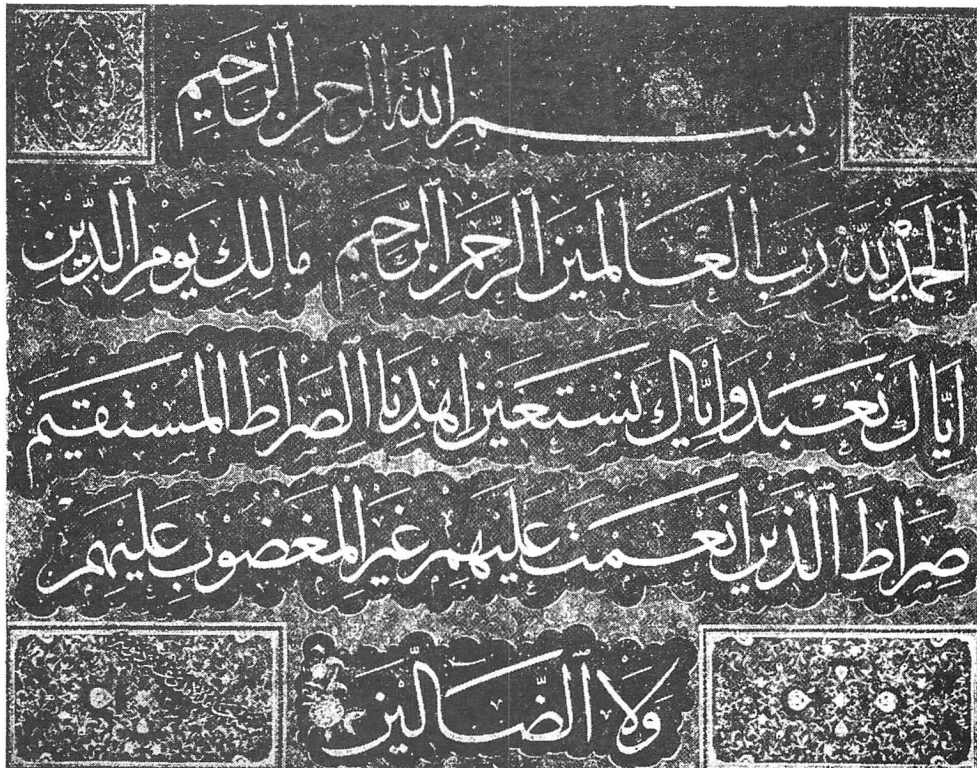 بِسْمِ اللّٰهِ الرَّحْمٰنِ الرَّحِيْمِ
اَلْحَمْدُ لِلّٰهِ رَبِّ الْعَالَمِيْنَ الرَّحْمٰنِ الرَّحِيْمِ مَالِكِ يَوْمِ الدِّيْنِ
اِيَّاكَ نَعْبُدُ وَاِيَّاكَ نَسْتَعِيْنُ اِهْدِنَا الصِّرَاطَ الْمُسْتَقِيْمَ
صِرَاطَ الَّذِيْنَ اَنْعَمْتَ عَلَيْهِمْ غَيْرِ الْمَغْضُوْبِ عَلَيْهِمْ
وَلَا الضَّالِّيْنَ